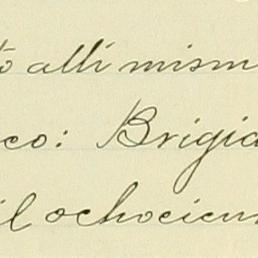 to alli mism
co: Brigia
il ochocicin